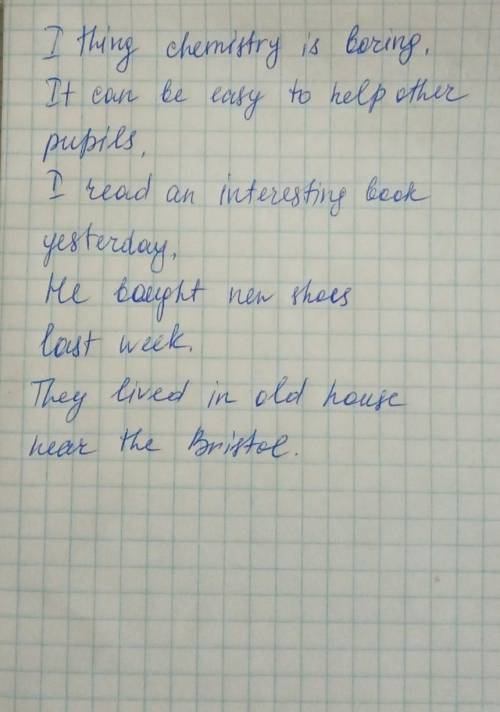 I thing chemistry is boring.
It can be easy to help other
pupils.
I read an interesting book
yesterday.
He bought new shoes
last week.
They lived in old house
near the Bristol.